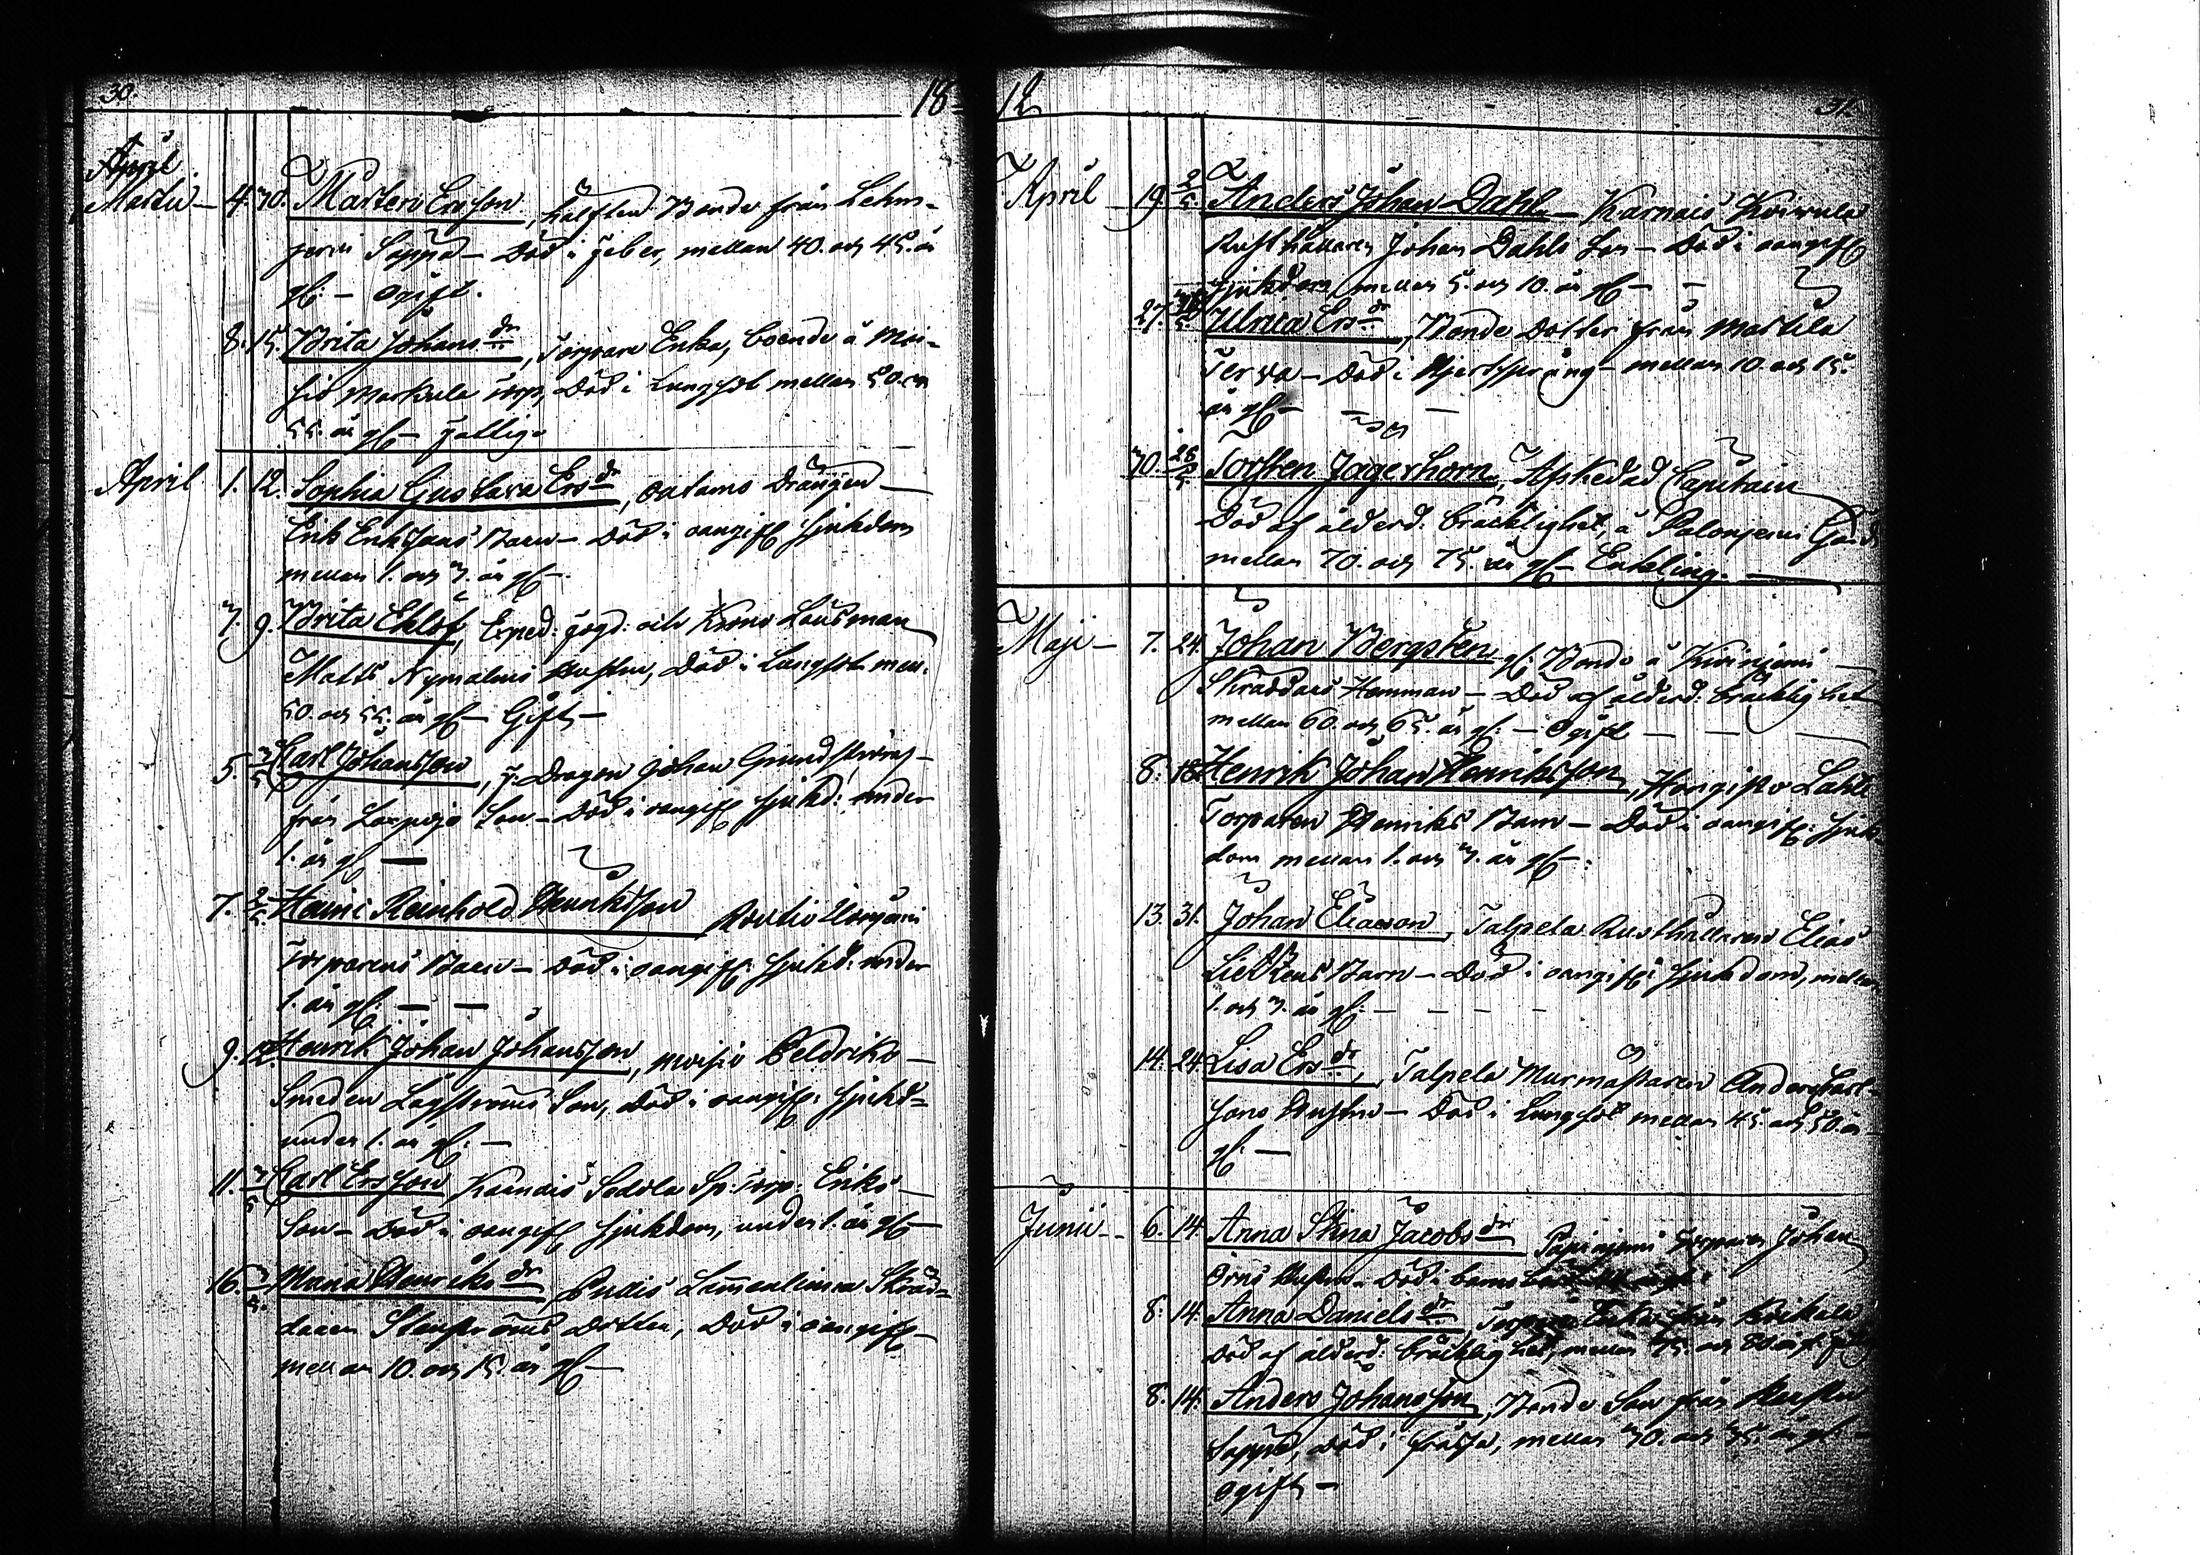 30.
18
April
Martii 4. 30. Mårten Ersson, hälften Bonde från Lehm-
jervi Seppä – Död i feber, mellan 40. och 45. år
gl: – Ogift.
8. 15. Brita Johans dr, Torpare Enka, boende å Moi-
sio Markula torp, Död i Lungsot mellan 50. och
55. år gl – Fattig
April 1. 12. Sophia Gustava Ers dr, Drängen
Erik Erikssons Barn – Död i oangifl sjukdom
mellan 1. och 3. år gl –
3. 9. Brita Eklöf, Exped: fogd: och Krono Länsman
Matts Nymalms Hustru, Död i Lungsot mell.
50. och 55. år gl – Gift –
5. 3/5 Carl Johansson, f: Dragon Johan Grundströms
från Son – Död i oangifl sjukd: under
1. år gl –
7. 2/5 Henric Reinhold Henriksson
Torparens Barn – Död i oangifl: sjukd: under
1. år gl: – –
9. 12. Henrik Johan Johansson, Moisio Peldriks
Smeden Lägströms Son, Död i oangifl: sjukd=
under 1. år gl: –
11. 3/5 Carl Ersson Karnais Sedola Sp: Torp: Eriks
Son – Död i oangifl sjukdom, under 1. år gl –
16. 3/5 Maria Henriks dr, Skräd=
daren Dotter, Död i oangifl
mellan 10. och 15. år gl –
12
31.
April 19. 2/5 Anders Johan Dahl – Karnais Koivula
Rusthållaren Johan Dahls Son – Död i oangifl
sjukdom, mellan 5. och 10. år gl – –
27. Ulrica Ers dr, Bonde Dotter från Martila
Terva – Död i Hjertsprång – mellan 10. och 15.
år gl – – –
30. 28/5 Torsten Jägerhorn, Afskedad Capitain
Död af ålderd: bräcklighet, å Palonjemi Gård
mellan 70. och 75. år gl – Enkling. –
Maji – 7. 24. Johan Bergsten, gl: Bonde å Kivinjemi
Skräddars Hemman – Död af ålderd: bräcklighet
mellan 60. och 65. år gl: – Ogift – – –
8. 18. Henrik Johan Henriksson, Hongisto Lahti
Torparen Henriks Barn – Död i oangifl: sjuk-
dom mellan 1. och 3. år gl –:
13. 31. Johan Eliasson, Talpela Rusthållaren Elias
Barn – Död i oangifl: sjukdom, mellan
1. och 3. år gl: – – – –
14. 24. Lisa Ers dr, Talpela Murmästaren Anders Carl-
sons Hustru – Död i Lungsot mellan 45. och 50. år
gl: –
Junii – 6. 14. Anna Stina Jacobs dr Torparen Johan
Örns Hustru – Död i barns
8. 14. Anna Daniels dr, Torpare Enka från
Död af ålderd: bräcklighet, mellan 75. och 80. år gl:
8. 14. Anders Johansson, Bonde Son från
Seppä, Död i frossa, mellan 30. och 35. år gl: –
ogift –